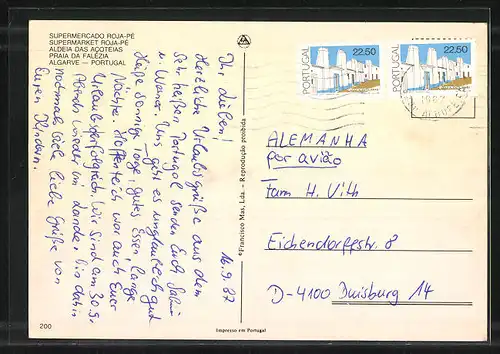 SUPERMERCADO ROJA-PÉ
SUPERMARKET ROJA-PÉ
ALDEIA DAS AÇOTEIAS
PRAIA DA FALÉZIA
ALGARVE — PORTUGAL
16.9.87
Ihr Lieben!
Herzliche Urlaubsgrüße aus dem
sehr heißen Portugal senden Euch
u. Werner. Uns geht es unglaublich gut
heiße sonnige Tage, gutes Essen, lange
Nächte. Hoffentlich war auch Euer
Urlaub erfolgreich. Wir sind am 30.9.
Abends wieder im Lande. Bis dahin
nochmals viele liebe Grüße von
Euren
200
© Francisco Mas, Lda. - Reprodução proibida
Impresso em Portugal
PORTUGAL
22.50
PORTUGAL
22.50
1987
ALEMANHA
por avião
Fam H. Vith
Eichendorffstr. 8
D-4100 Duisburg 14